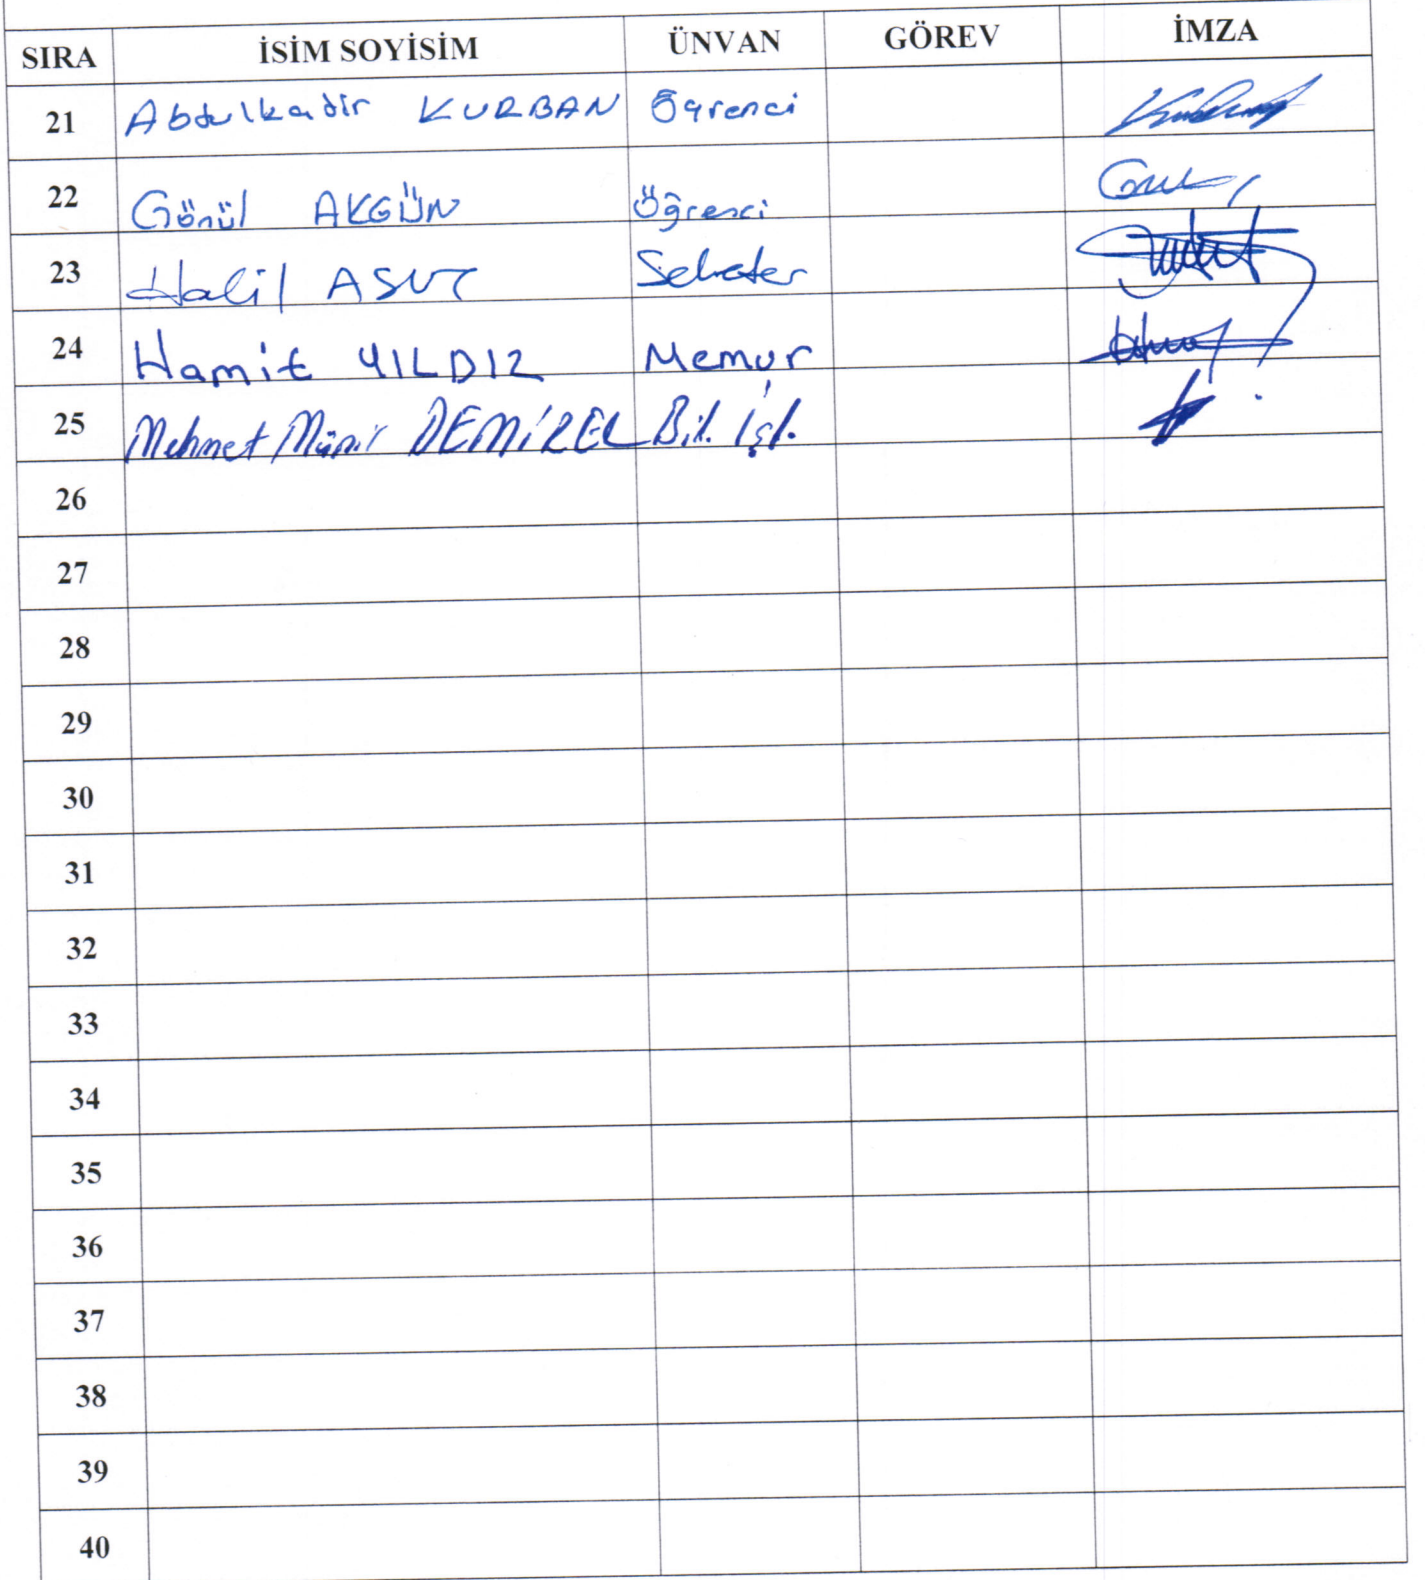 SIRA İSİM SOYİSİM ÜNVAN GÖREV İMZA
21 Abdulkadir KURBAN Öğrenci
22 Gönül AKGÜN Öğrenci
23 Halil ASUT Sekreter
24 Hamit YILDIZ Memur
25 Mehmet Münir DEMİREL Bil. İşl.
26
27
28
29
30
31
32
33
34
35
36
37
38
39
40